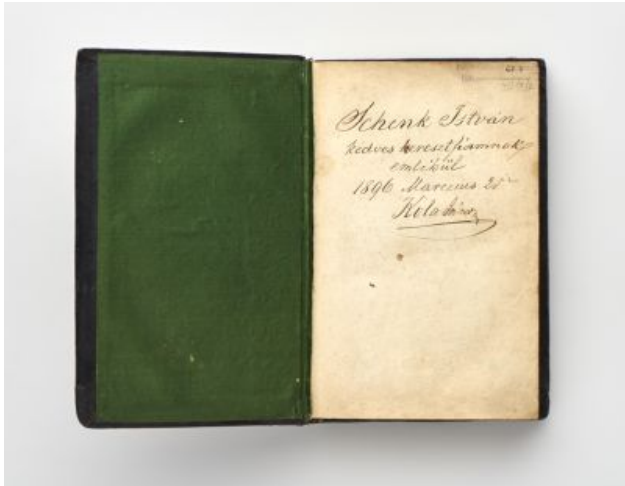 Schenk István
kedves keresztfiamnak
emlékül
1896 Marczius 25
Kola